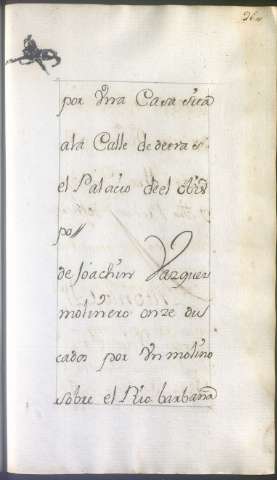 por Vna Casa sita
ala Calle de detras
el Palacio del Obis
po //
de Joachin Vazquez
molinero onze du
cados por Un molino
sobre el Rio barbaña